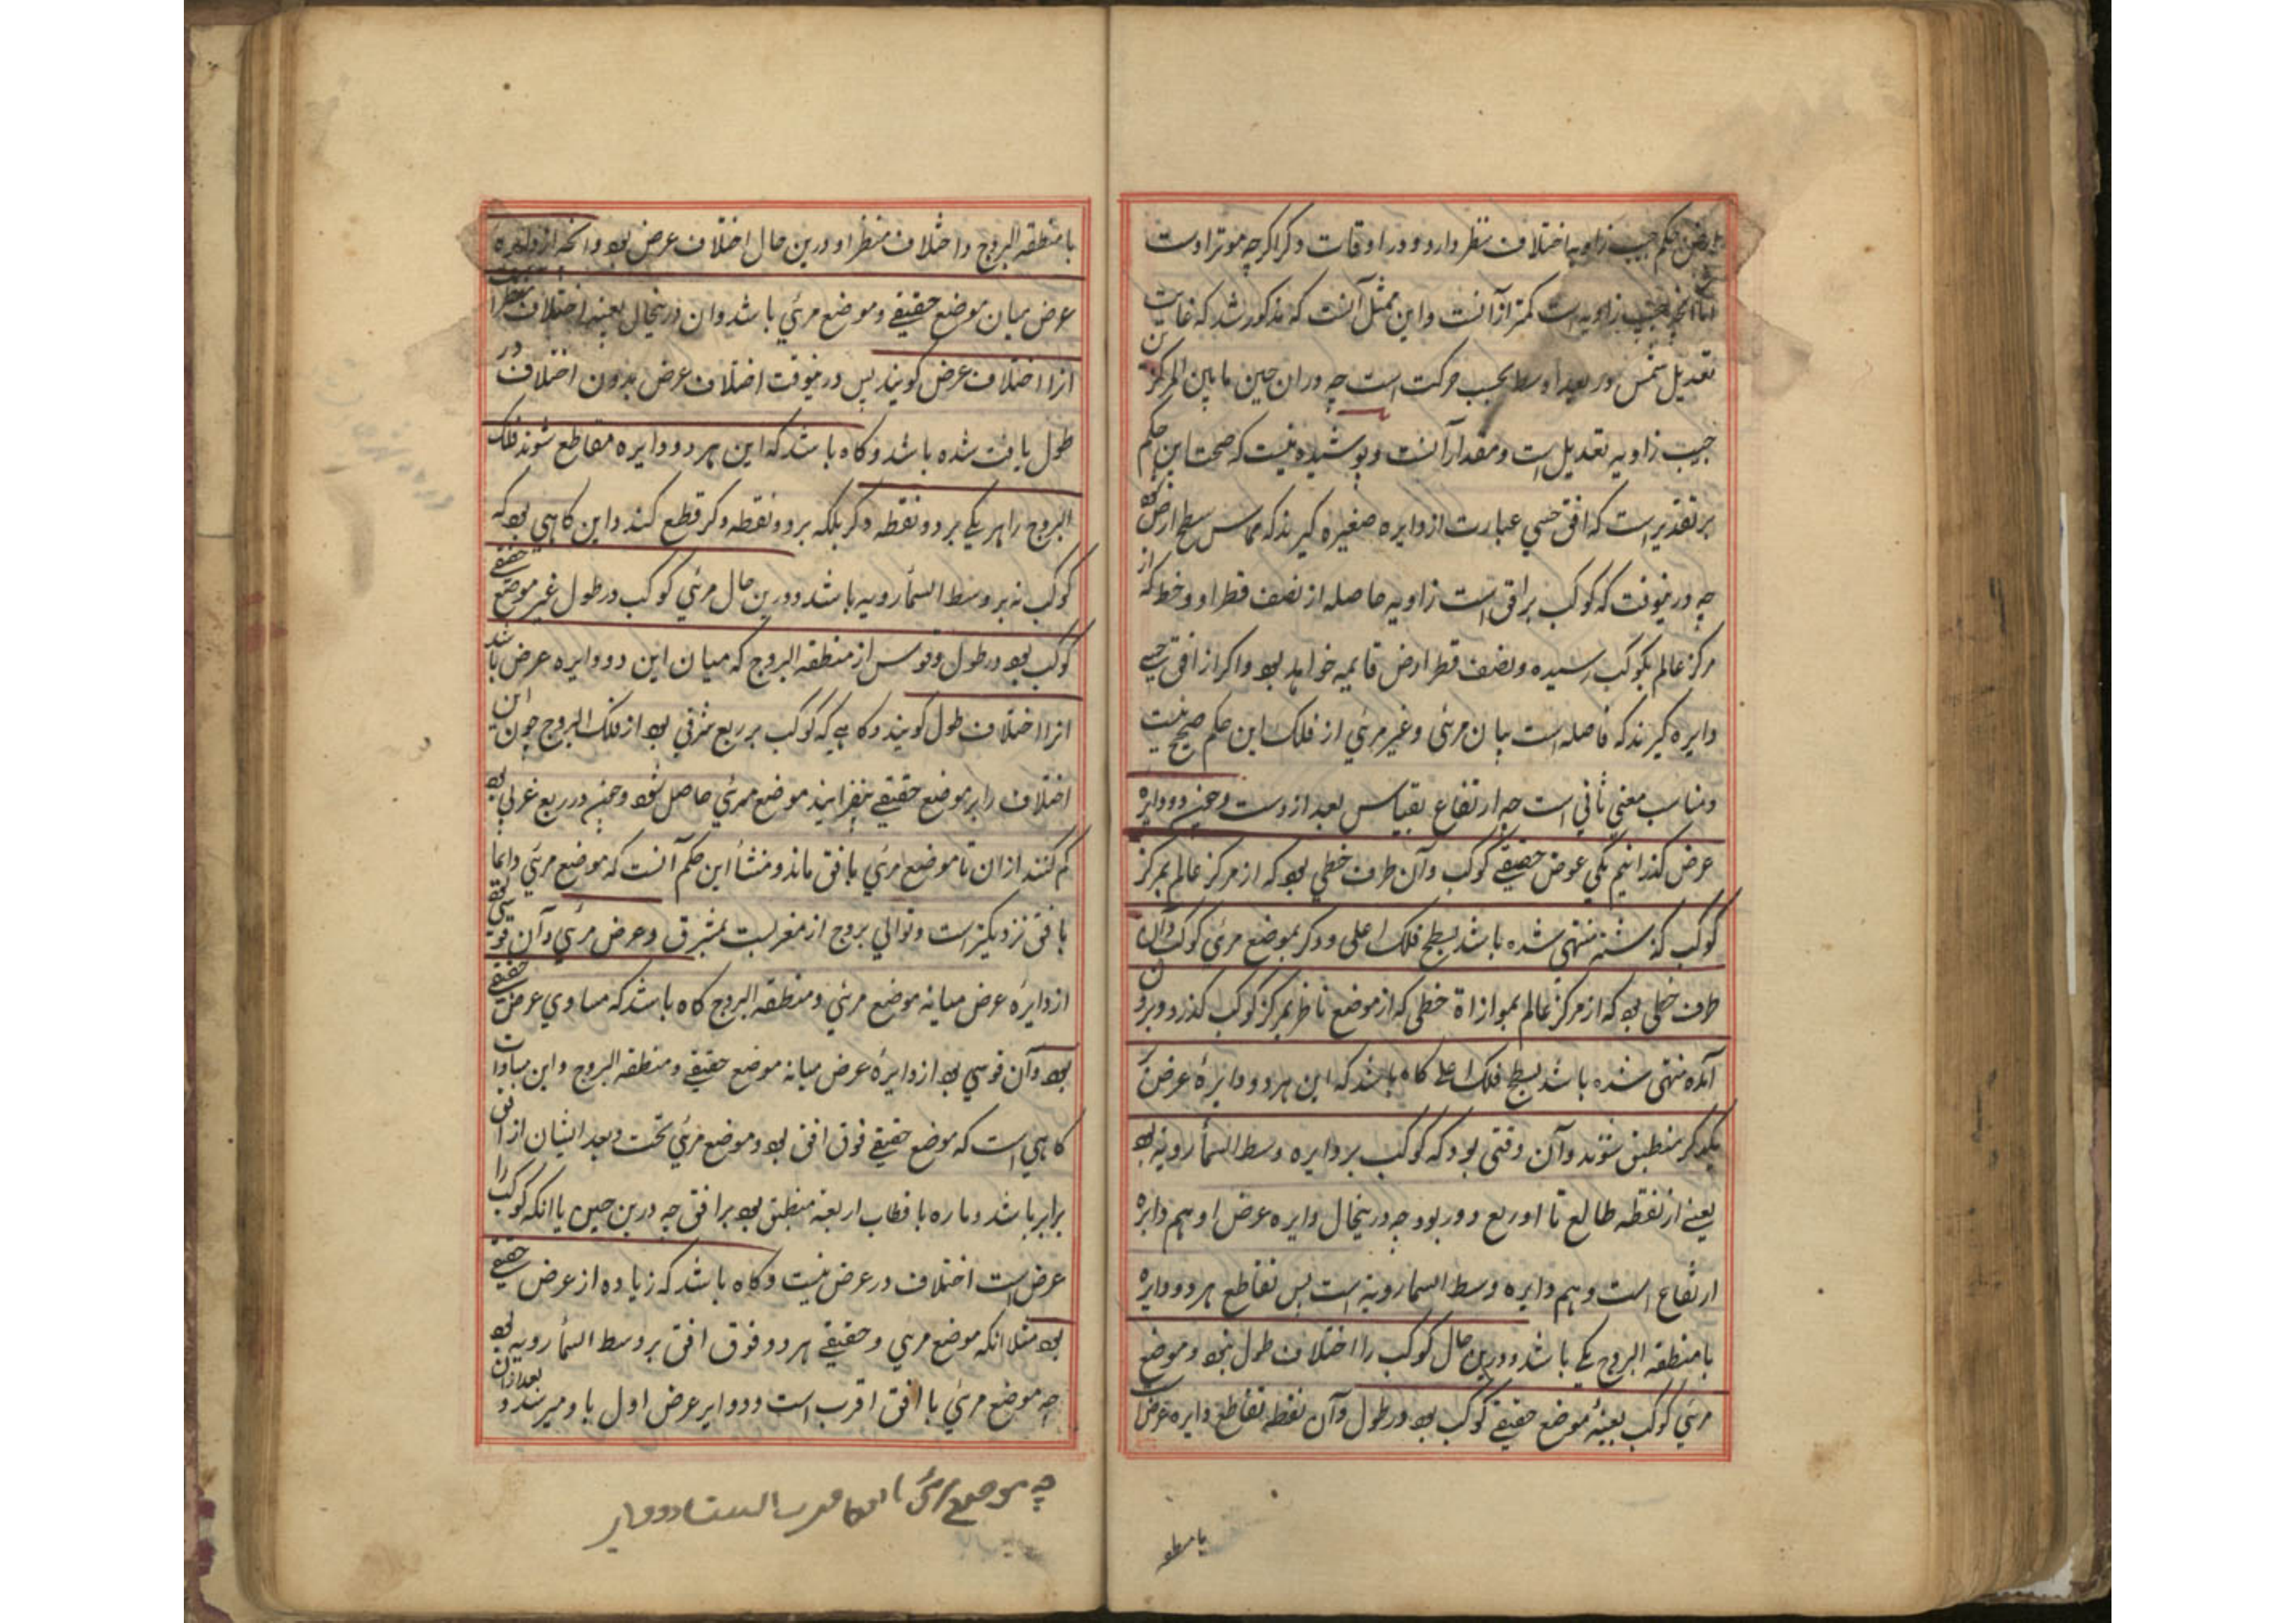 ارض بحکم جیب زاویه اختلاف منظر دارد و در اوقات دگر اگرچه موتر اوست
اما آنچه جیب زاویه است کمتر ازآنست و این بمثل آنست که مذکور شد که غایت
تعدیل شمس در بعد اوسط بحسب حرکت است چه دران حین ما بین المرکزین
جیب زاویه تعدیل است و مقدار آنست و پوشیده نیست که صحت این حکم
بر تقدیریست که افق حسی عبارت از دایره صغیره گیرند که مماس سطح ارض بود
چه درینوقت که کوکب بر افق است زاویه حاصله از نصف قطر او و خط که از
مرکز عالم بکوکب رسیده و نصف قطر ارض قایمه خواهد بود و اگر از افق حسی
دایره گیرند که فاصله است میان مرئی و غیر مرئی از فلک این حکم صحیح نیست
و مناسب معنی ثانی است چه ارتفاع بقیاس بعد ازوست و چون دو دایره
عرض گذرانیم یکی بموضع حقیقی کوکب و آن طرف خطی بود که از مرکز عالم بمرکز
کوکب گذشته منتهی شده باشد بسطح فلک اعلی و دگر بموضع مرئی کوکب و آن
طرف خطی بود که از مرکز عالم بموازاة خطی که از موضع ناظر بمرکز کوکب گذرد و برون
آمده منتهی شده باشد بسطح فلک اعلی گاه باشد که این هر دو دایرهٔ عرض بر
یکدگر منطبق شوند و آن وقتی بود که کوکب بر دایره وسط السمأ رویة بود
یعنی از نقطه طالع تا او ربع دور بود چه درینحال دایره عرض او هم دایره
ارتفاع است و هم دایره وسط السما رویة است بس تقاطع هر دو دایره
با منطقة البروج یکی باشد و درین حال کوکب را اختلاف طول نبود و موضع
مرئی کوکب بعینهٔ موضع حقیقی کوکب بود در طول و آن نقطه تقاطع دایره عرض است
با منطقه
با منطقه البروج و اختلاف منظر او درین حال اختلاف عرض بود و آنچه از دایره
عرض میان موضع حقیقی و موضع مرئی باشد و ان درینحال بعینه اختلاف منظر است
انرا اختلاف عرض گویند پس درینوقت اختلاف عرض بدون اختلاف در
طول یافت شده باشد و گاه باشد که این هر دو دایره مقاطع شوند فلک
البروج را هر یکی بر دو نقطه دگر بلکه بر دو نقطه دگر قطع کند و این گاهی بود که
کوکب نه بر وسط السمأ رویه باشد و درین حال مرئی کوکب در طول غیر موضع حقیقی
کوکب بود در طول و قوس از منطقه البروج که میان این دو دایره عرض باشد
انرا اختلاف طول گویند و گاهی که کوکب بر ربع شرقی بود از فلک البروج چون این
اختلاف را بر موضع حقیقی بیفزایند موضع مرئی حاصل شود و چون در ربع غربی بود
کم کنند ازان تا موضع مرئی بافق ماند و منشأ این حکم آنست که موضع مرئی دایما
بافق نزدیکتر است و توالی بروج از مغربست بمشرق و عرض مرئی و آن قوسی بود
از دایرهٔ عرض میانه موضع مرئی و منطقه البروج گاه باشد که مساوی عرض حقیقی
بود و آن قوسی بود از دایرهٔ عرض میانه موضع حقیقی و منطقه البروج و این مساوات
گاهی است که موضع حقیقی فوق افق بود و موضع مرئی تحت و بعد ایشان از افق
برابر باشد و ماره باقطاب اربعه منطبق بود بر افق چه درین حین با انکه کوکب را
عرض است اختلاف در عرض نیست و گاه باشد که زیاده از عرض حقیقی
بود مثلا انکه موضع مرئی و حقیقی هر دو فوق افق بر وسط السمأ رویه بود
چه موضع مرئی با افق اقرب است و دوایر عرض اول باو میرسند و بعد ازان
چه موضع مرئی با افق اقرب است و دوایر